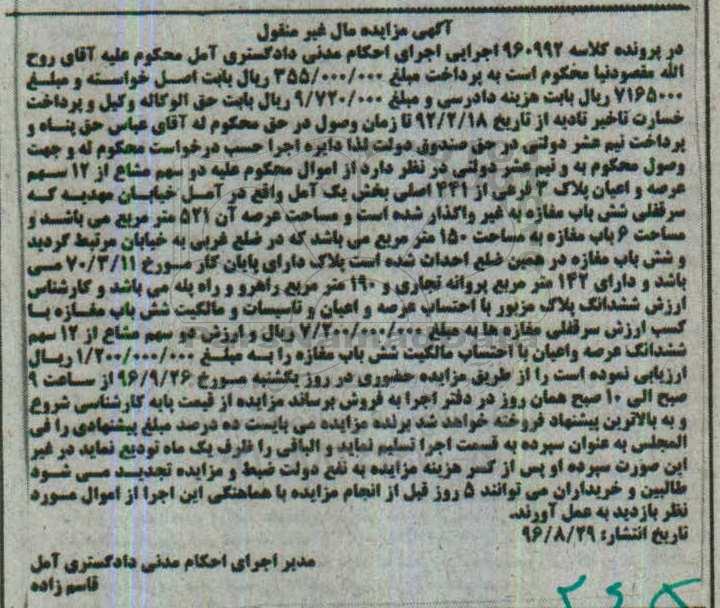 آگهی مزایده مال غیر منقول
در پرونده کلاسه ۹۶۰۹۹۲ اجرایی اجرای احکام مدنی دادگستری آمل محکوم علیه آقای روح
الله مقصودنیا محکوم است به پرداخت مبلغ ۳۵۵/۰۰۰/۰۰۰ ریال بابت اصل خواسته و مبلغ
۷۱۶۵۰۰۰ ریال بابت هزینه دادرسی و مبلغ ۹/۷۲۰/۰۰۰ ریال بابت حق الوکاله وکیل و پرداخت
خسارت تاخیر تادیه از تاریخ ۹۲/۲/۱۸ تا زمان وصول در حق محکوم له آقای عباس حق پناه و
پرداخت نیم عشر دولتی در حق صندوق دولت لذا دایره اجرا حسب درخواست محکوم له و جهت
وصول محکوم به و نیم عشر دولتی در نظر دارد از اموال محکوم علیه دو سهم مشاع از ۱۲ سهم
عرصه و اعیان پلاک ۳ فرعی از ۴۴۱ اصلی بخش یک آمل واقع در آمل خیابان مهدیه که
سرقفلی شش باب مغازه به غیر واگذار شده است و مساحت عرصه آن ۵۲۱ متر مربع می باشد و
مساحت ۶ باب مغازه به مساحت ۱۵۰ متر مربع می باشد که در ضلع غربی به خیابان مرتبط گردید
و شش باب مغازه در همین ضلع احداث شده است پلاک دارای پایان کار مورخ ۷۰/۳/۱۱ می
باشد و دارای ۱۴۲ متر مربع پروانه تجاری و ۱۹۰ متر مربع راهرو و راه پله می باشد و کارشناس
ارزش ششدانگ پلاک مزبور با احتساب عرصه و اعیان و تاسیسات و مالکیت شش باب مغازه با
کسب ارزش سرقفلی مغازه ها به مبلغ ۷/۲۰۰/۰۰۰/۰۰۰ ریال و ارزش دو سهم مشاع از ۱۲ سهم
ششدانگ عرصه واعیان با احتساب مالکیت شش باب مغازه را به مبلغ ۱/۲۰۰/۰۰۰/۰۰۰ ریال
ارزیابی نموده است را از طریق مزایده حضوری در روز یکشنبه مورخ ۹۶/۹/۲۶ از ساعت ۹
صبح الی ۱۰ صبح همان روز در دفتر اجرا به فروش برساند مزایده از قیمت پایه کارشناسی شروع
و به بالاترین پیشنهاد فروخته خواهد شد برنده مزایده می بایست ده درصد مبلغ پیشنهادی را فی
المجلس به عنوان سپرده به قسمت اجرا تسلیم نماید و الباقی را ظرف یک ماه تودیع نماید در غیر
این صورت سپرده او پس از کسر هزینه مزایده به نفع دولت ضبط و مزایده تجدید می شود
طالبین و خریداران می توانند ۵ روز قبل از انجام مزایده با هماهنگی این اجرا از اموال مورد
نظر بازدید به عمل آورند.
تاریخ انتشار: ۹۶/۸/۲۹
مدیر اجرای احکام مدنی دادگستری آمل
قاسم زاده